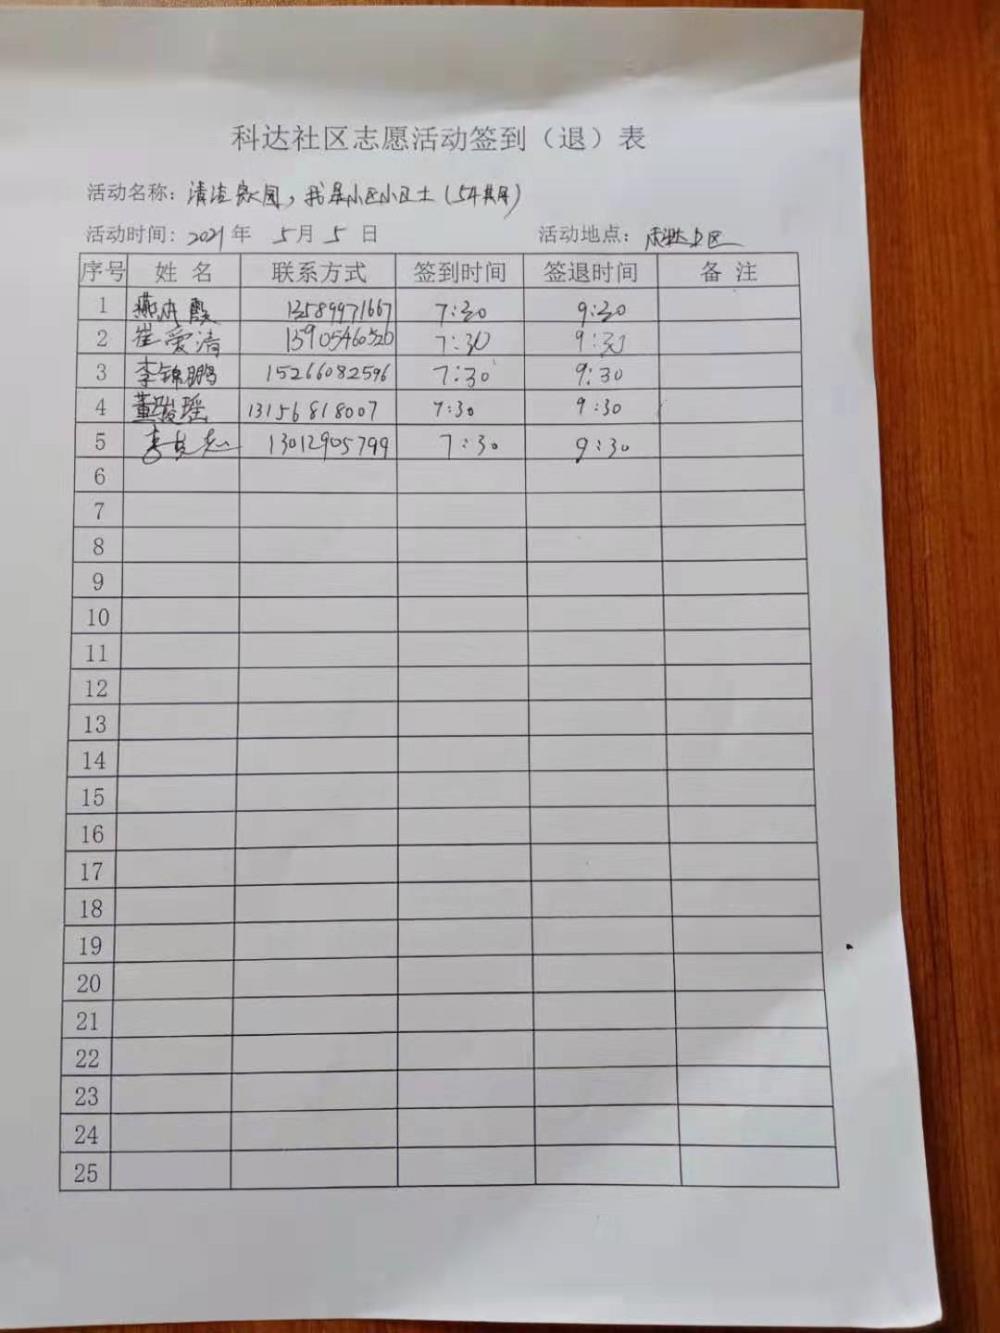 科达社区志愿活动签到（退）表
活动名称：清洁家园，我是小区小卫士（54期）
活动时间：2021年 5月 5日 活动地点：科达社区
序号 姓名 联系方式 签到时间 签退时间 备注
1 13589971667 7:30 9:30
2 崔爱清 15905460520 7:30 9:30
3 李锦鹏 15266082596 7:30 9:30
4 董骏瑶 13156818007 7:30 9:30
5 李 13012905799 7:30 9:30
6
7
8
9
10
11
12
13
14
15
16
17
18
19
20
21
22
23
24
25